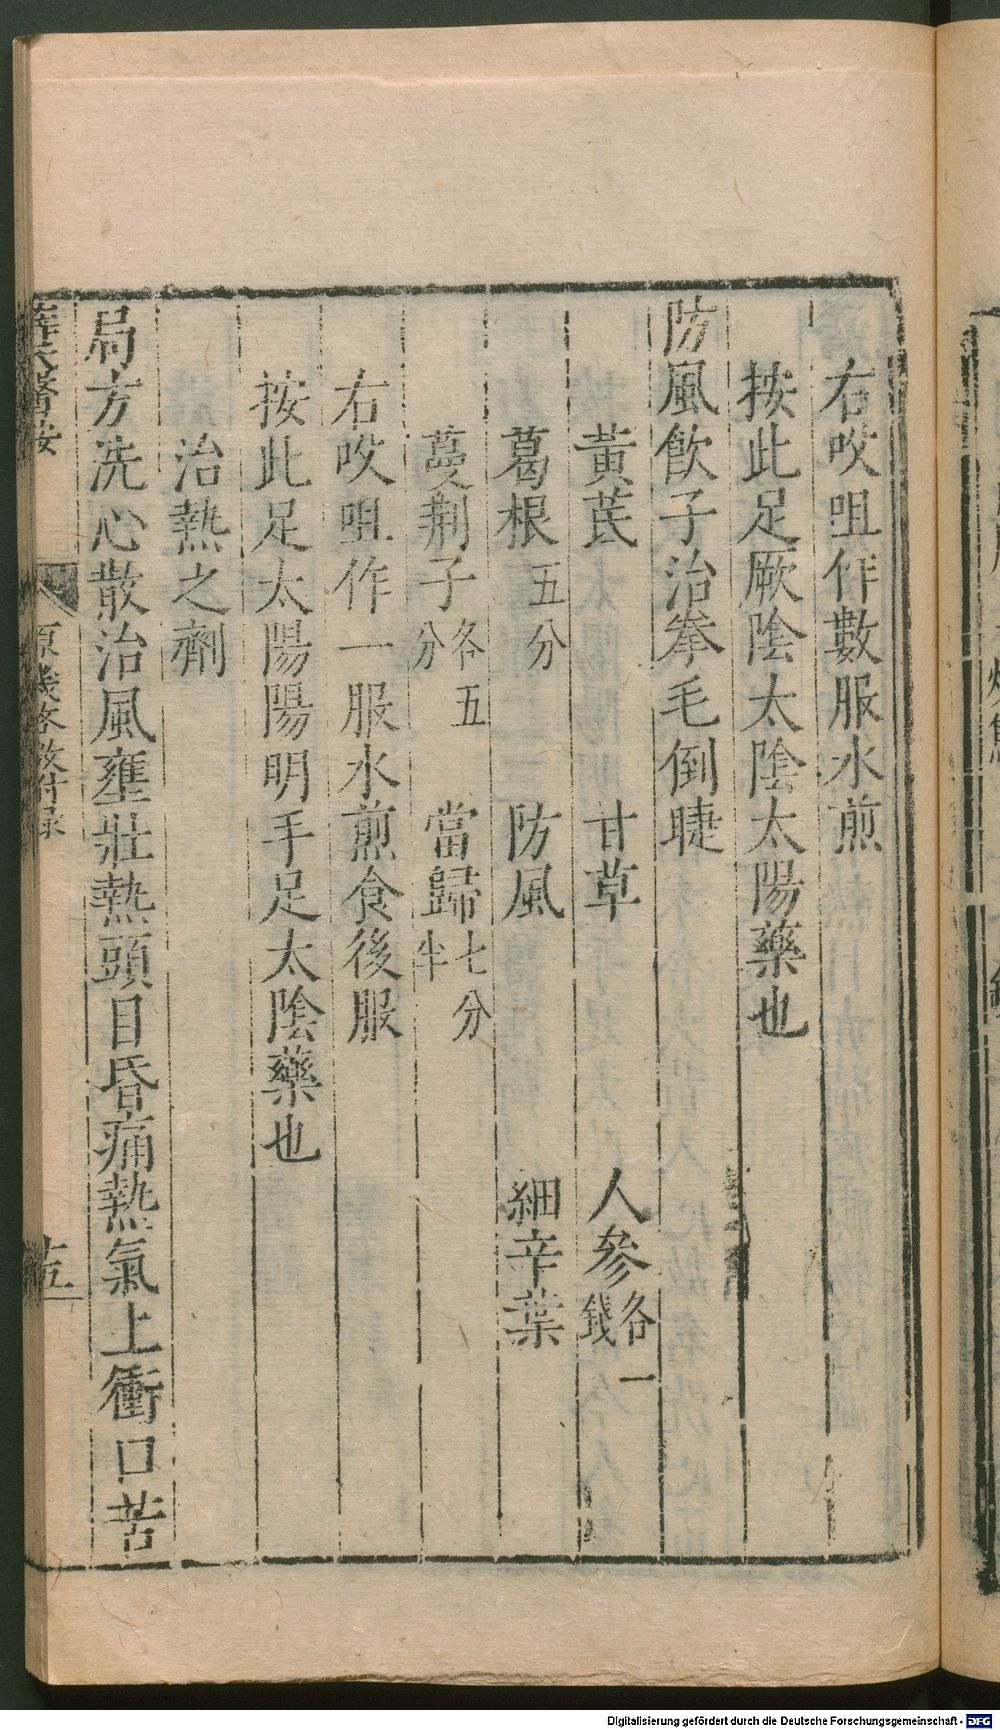 右㕮咀作數服水煎
按此足厥陰太陰太陽藥也
防風飲子治拳毛倒睫
黃茋 甘草 人參各一錢
葛根五分 防風 細辛葉
蔓荆子各五分 當歸七分半
右㕮咀作一服水煎食後服
按此足太陽陽明手足太陰藥也
治熱之劑
局方洗心散治風壅壯熱頭目昏痛熱氣上衝口苦
薛氏醫按 原機啓微付录 十五
Digitalisierung gefördert durch die Deutsche Forschungsgemeinschaft - DFG